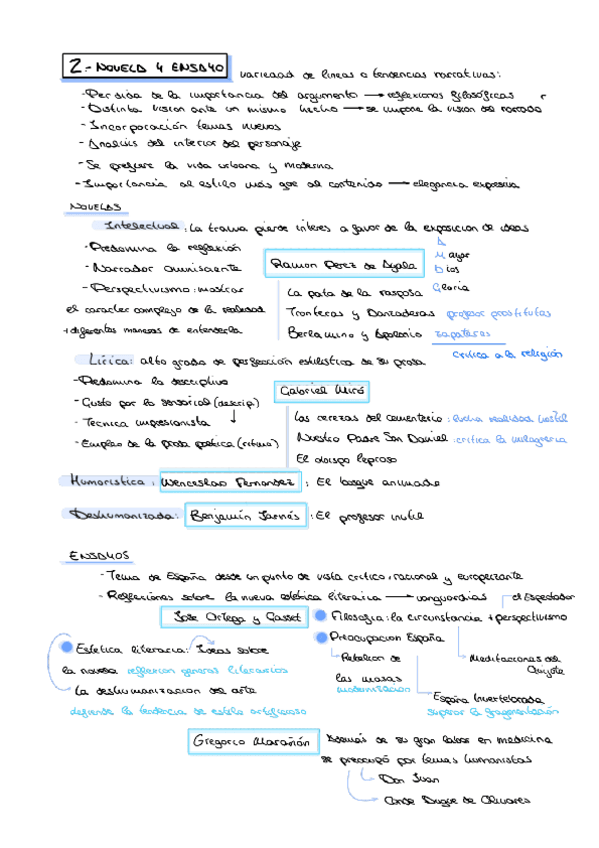 2.- NOVELA Y ENSAYO
variedad de lineas o tendencias narrativas:
- Perdida de la importancia del argumento → reflexiones filosóficas
- Distinta vision ante un mismo hecho → se impone la vision del narrado
- Incorporación temas nuevos
- Analisis del interior del personaje
- Se prefiere la vida urbana y moderna
- Importancia al estilo más que al contenido → elegancia expresiva
NOVELAS
Intelectual: La trama pierde interes a favor de la exposicion de ideas
- Predomina la reflexión
- Narrador omnisciente
- Perspectivismo: mostrar
el caracter complejo de la realidad
+ diferentes maneras de entenderla
Ramon Perez de Ayala
A
Mayor
Dios
Gloria
La pata de la raposa
Tronteras y Danzaderas profesor prostitutas
Berlarmino y Apolonio zapateros
critica a la religión
Lírica: alto grado de perfección estilistica de su prosa
- Predomina la descriptivo
- Gusto por lo sensorial (descrip.)
- Tecnica impresionista
- Empleo de la prosa poetica (ritmo)
Gabriel Miró
Las cerezas del cementerio: lucha realidad hostil
Nuestro Padre San Daniel: critica la milagreria
El obispo leproso
Humoristica: Wenceslao Fernandez: El bosque animado
Deshumanizada: Benjamín Jarnés: El profesor inutil
ENSAYOS
- Tema de España desde un punto de vista critico, racional y europeizante
- Reflexiones sobre la nueva estética literaria → vanguardias
el Espectador
Jose Ortega y Gasset
Filosofia: la circunstancia + perspectivismo
Preocupacion España
Estética literaria: Ideas sobre
la novela reflexion generos literarios
La deshumanizacion del arte
defiende la tendencia de estilo artificioso
Rebelion de
las masas
modernizacion
Meditaciones del
Quijote
España Invertebrada
superar la fragmentación
Gregorio Marañón
Además de su gran labor en medicina
se preocupó por temas humanistas
Don Juan
Conde Duque de Olivares